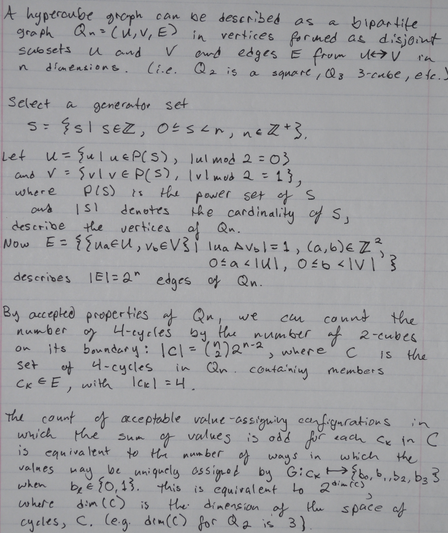 A hypercube graph can be described as a bipartite
graph Qn = (U, V, E) in vertices formed as disjoint
subsets U and V and edges E from U↔V in
n dimensions. (i.e. Q₂ is a square, Q₃ 3-cube, etc.)
Select a generator set
S = {s | s∈Z, 0≤s<n, n∈Z⁺}.
Let U = {u | u∈P(S), |u| mod 2 = 0}
and V = {v | v∈P(S), |v| mod 2 = 1},
where P(S) is the power set of S
and |S| denotes the cardinality of S,
describe the vertices of Qn.
Now E = {{ua∈U, vb∈V} | |ua Δ vb| = 1, (a,b)∈Z²,
0≤a<|U|, 0≤b<|V|}
describes |E| = 2ⁿ edges of Qn.
By accepted properties of Qn, we can count the
number of 4-cycles by the number of 2-cubes
on its boundary: |C| = (n 2) 2ⁿ⁻², where C is the
set of 4-cycles in Qn containing members
cₖ ∈ E, with |cₖ| = 4.
The count of acceptable value-assigning configurations in
which the sum of values is odd for each cₖ in C
is equivalent to the number of ways in which the
values may be uniquely assigned by G: cₖ ↦ {b₀, b₁, b₂, b₃}
when bₖ ∈ {0, 1}. This is equivalent to 2^dim(C),
where dim(C) is the dimension of the space of
cycles, C. (e.g. dim(C) for Q₂ is 3).